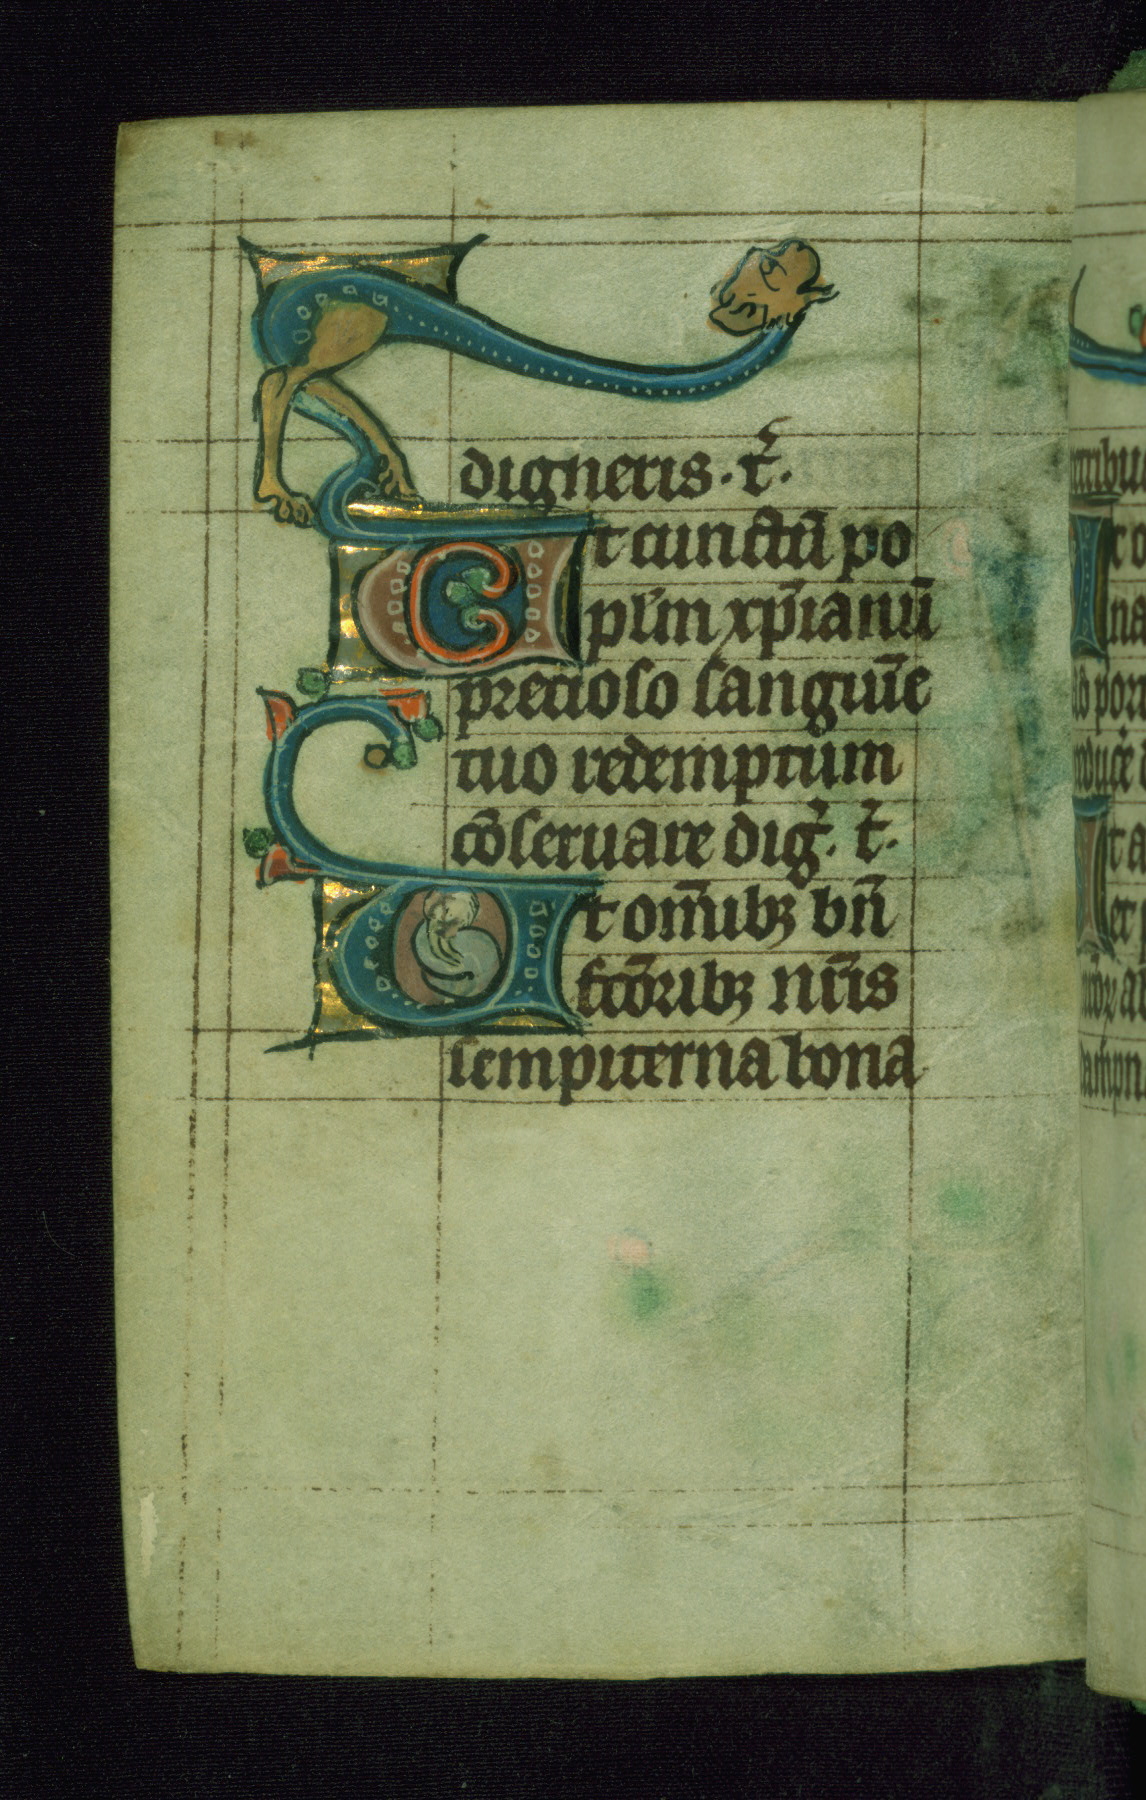 digneris. t̄.
Et cunctū po
pl̄m xp̄ianū
precioso sanguīe
tuo redemptum
cōseruare diḡ. t̄.
Et om̄ibꝫ bn̄
fctōribꝫ nr̄is
sempiterna bona